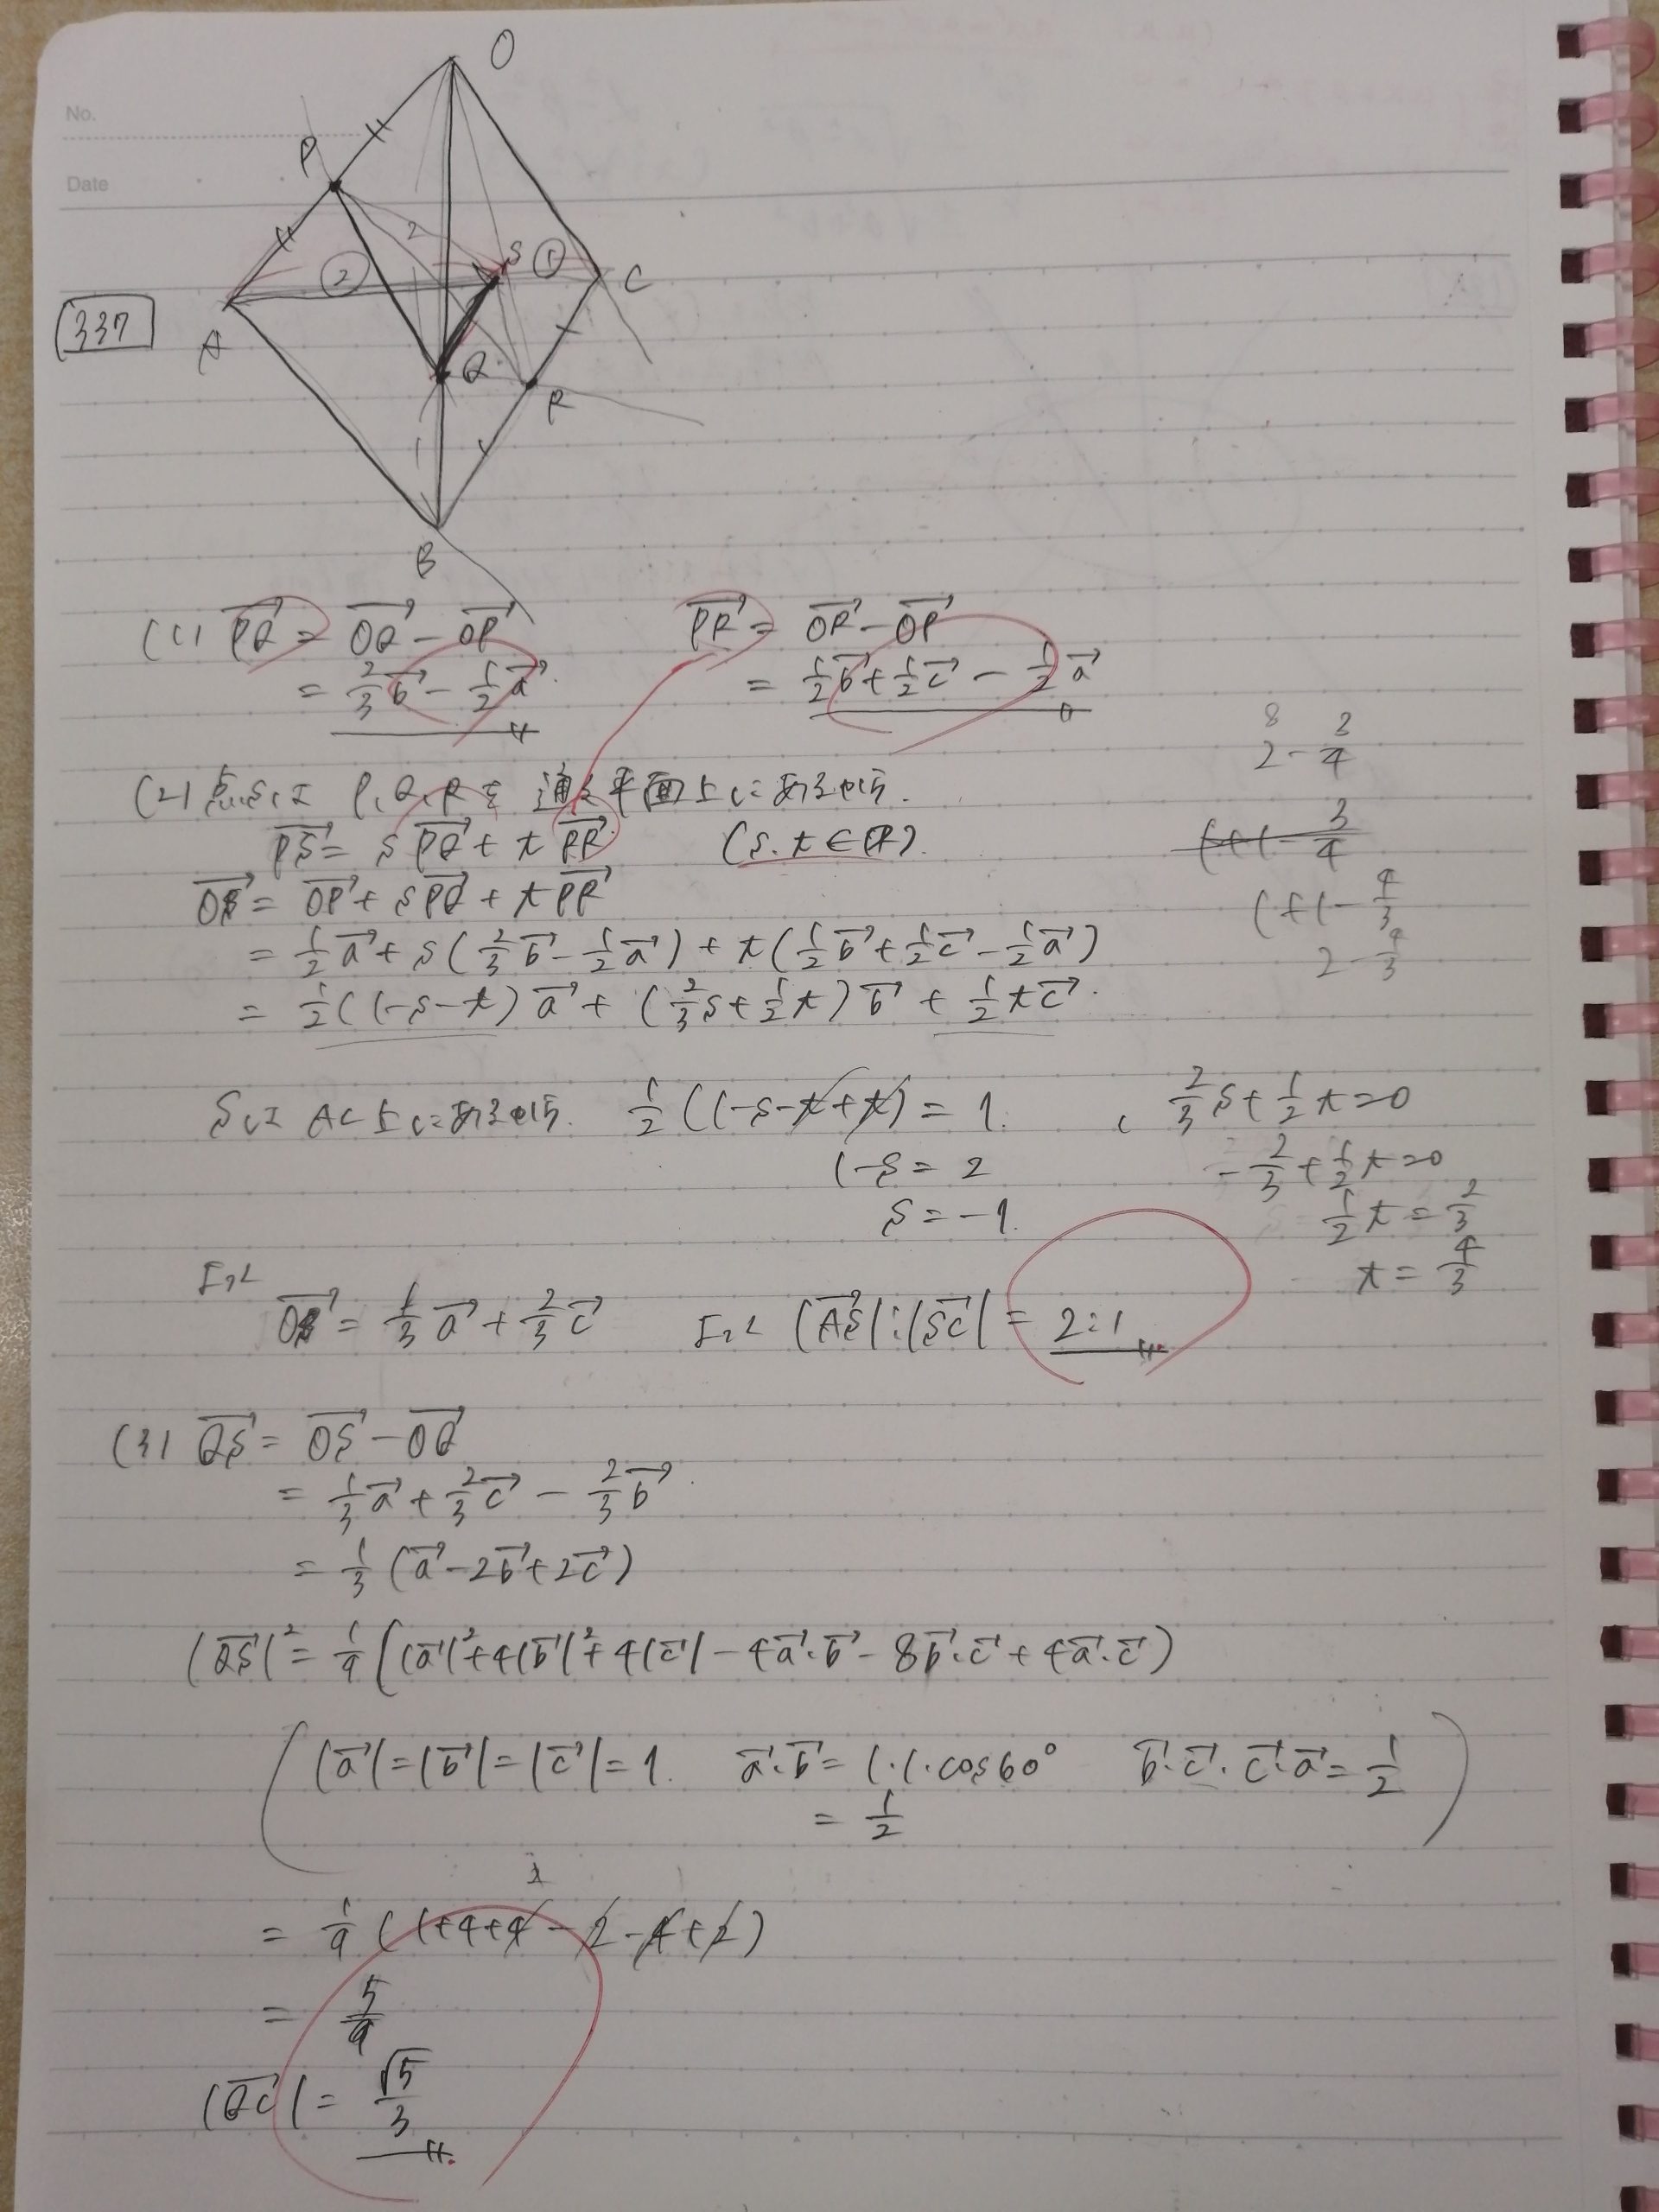 No.
Date
O
P
2
S
①
②
C
A
337
Q
R
1
B
(1) PQ→ = OQ→ − OP→
= 2/3 b→ − 1/2 a→
PR→ = OR→ − OP→
= 1/2 b→ + 1/2 c→ − 1/2 a→
(2) 点Sは P,Q,Rを通る平面上にあるから.
PS→ = sPQ→ + tPR→ (s,t∈R).
OS→ = OP→ + sPQ→ + tPR→
= 1/2 a→ + s(2/3 b→ − 1/2 a→) + t(1/2 b→ + 1/2 c→ − 1/2 a→)
= 1/2(1−s−t)a→ + (2/3 s + 1/2 t)b→ + 1/2 tc→.
8 3
2 − 3/4
1+1−3/4
1+1−4/3
2−4/3
SはAC上にあるから. 1/2(1−s−t+t) = 1. , 2/3 s + 1/2 t = 0
1−s = 2
−2/3 + 1/2 t = 0
s = −1.
1/2 t = 2/3
t = 4/3
よって
OS→ = 1/3 a→ + 2/3 c→ よって |AS→|:|SC→| = 2:1
(3) QS→ = OS→ − OQ→
= 1/3 a→ + 2/3 c→ − 2/3 b→.
= 1/3 (a→ − 2b→ + 2c→)
|QS→|² = 1/9 (|a→|² + 4|b→|² + 4|c→| − 4a→·b→ − 8b→·c→ + 4a→·c→)
(|a→| = |b→| = |c→| = 1. a→·b→ = 1·1·cos60° b→·c→. c→·a→ = 1/2)
= 1/2
= 1/9 (1+4+4−2−4+2)
= 5/9
|QC→| = √5/3